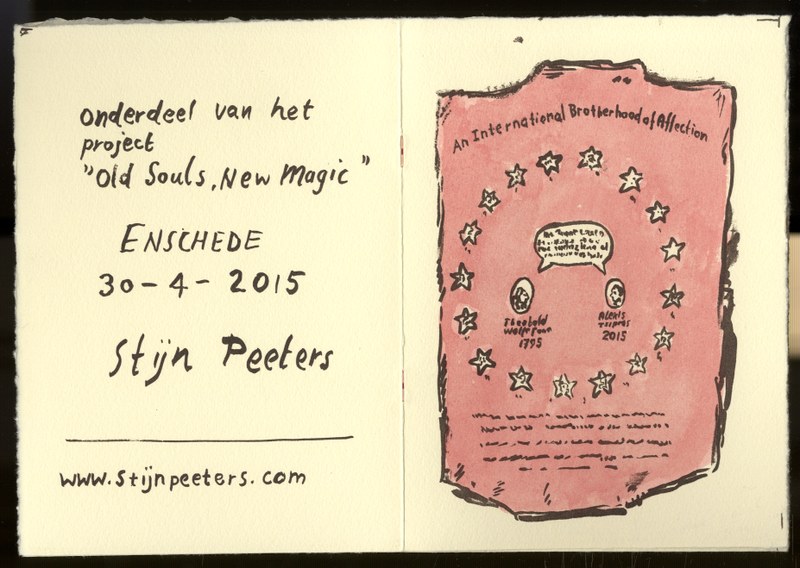 onderdeel van het
project
"Old Souls, New Magic"
ENSCHEDE
30-4-2015
Stijn Peeters
www.stijnpeeters.com
An International Brotherhood of Affection
Theobald
Wolfe Tone
1795
Alexis
Tsipras
2015